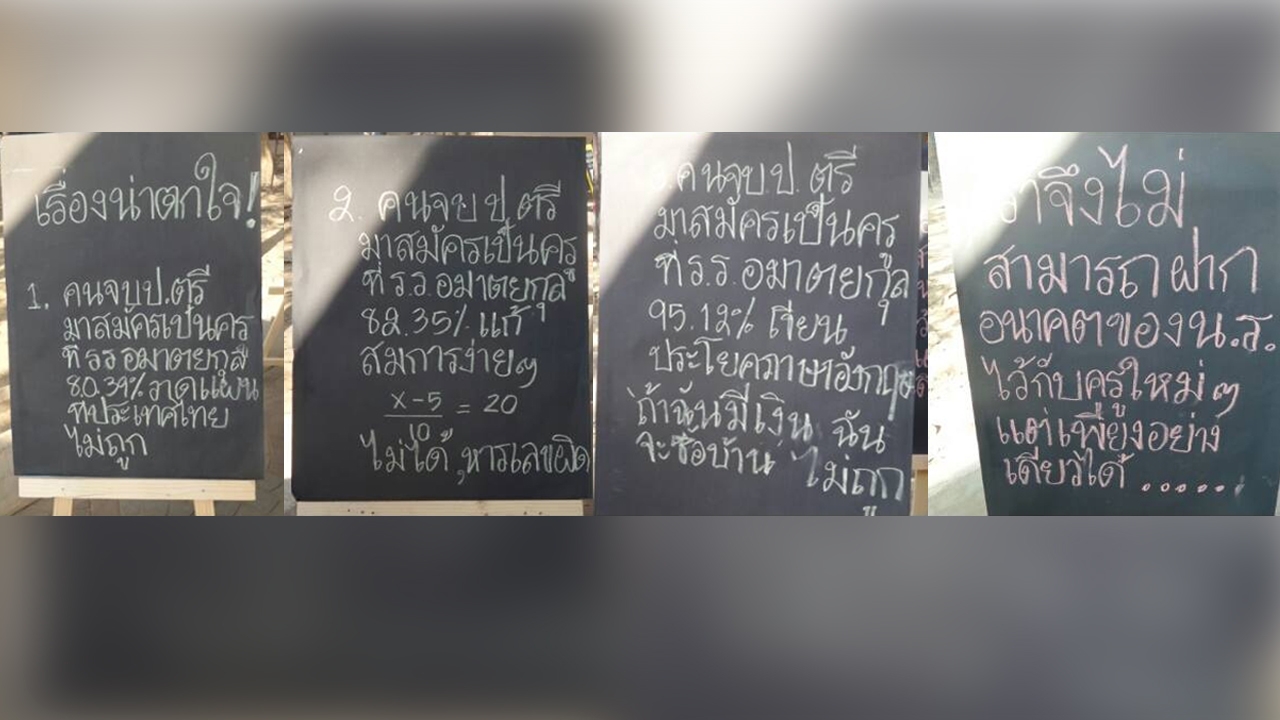 เรื่องน่าตกใจ!
1. คนจบป.ตรี
มาสมัครเป็นครู
ที่ ร.ร. อมาตยกุล
80.39% วาดแผน
ที่ประเทศไทย
ไม่ถูก
2. คนจบ ป.ตรี
มาสมัครเป็นครู
ที่ ร.ร. อมาตยกุล
82.35% แก้
สมการง่ายๆ
x-5
10
= 20
ไม่ได้, หารเลขผิด
คนจบ ป. ตรี
มาสมัครเป็นครู
ที่ ร.ร. อมาตยกุล
95.12% เขียน
ประโยคภาษาอังกฤษ
ถ้าฉันมีเงิน ฉัน
จะซื้อบ้าน ไม่ถูก
จึงไม่
สามารถฝาก
อนาคตของ น.ร.
ไว้กับครูใหม่ๆ
แต่เพียงอย่าง
เดียวได้ ......